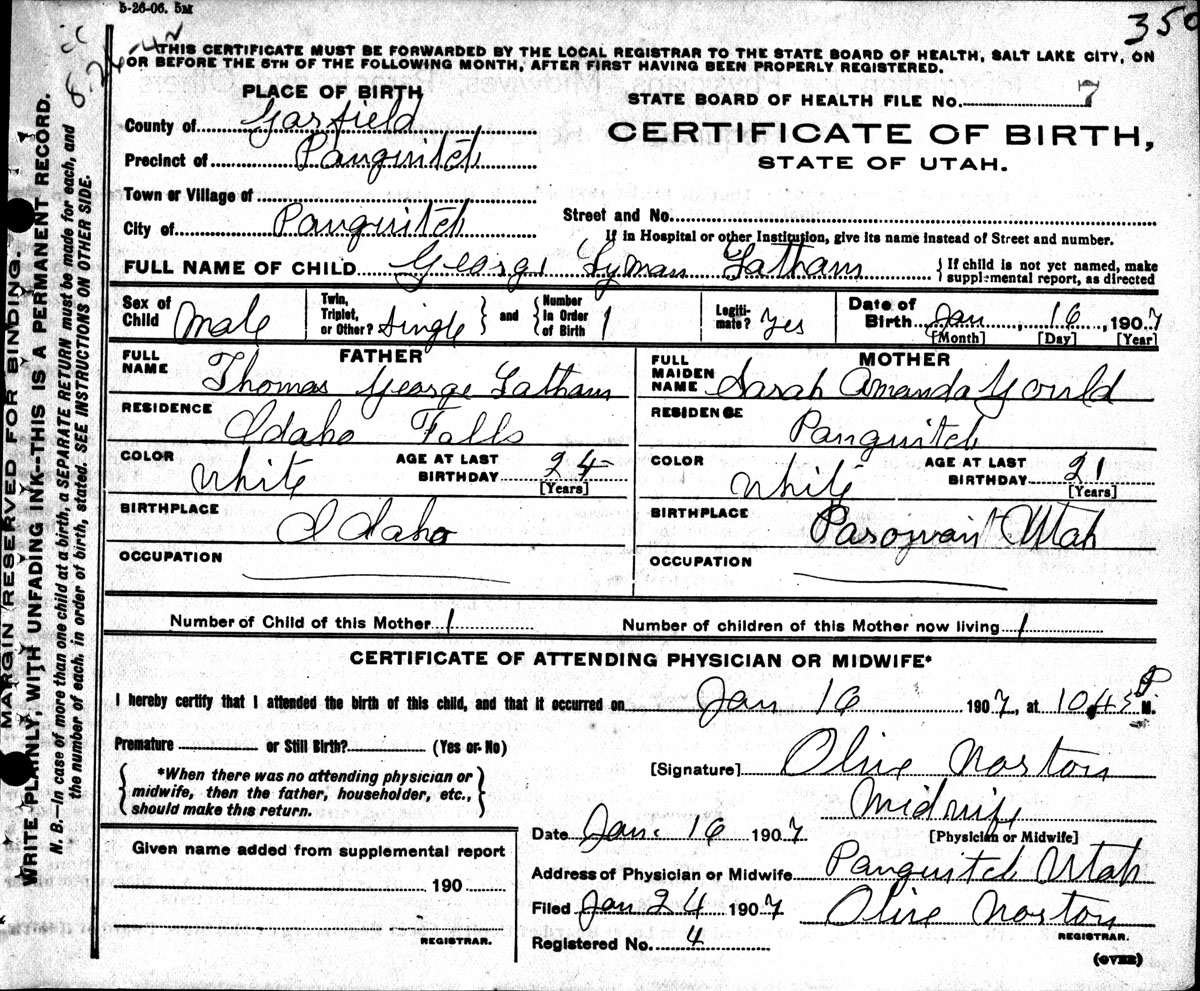 5-26-06. 5M
350
THIS CERTIFICATE MUST BE FORWARDED BY THE LOCAL REGISTRAR TO THE STATE BOARD OF HEALTH, SALT LAKE CITY, ON
OR BEFORE THE 5TH OF THE FOLLOWING MONTH, AFTER FIRST HAVING BEEN PROPERLY REGISTERED.
MARGIN RESERVED FOR BINDING.
WRITE PLAINLY, WITH UNFADING INK--THIS IS A PERMANENT RECORD.
N. B.—In case of more than one child at a birth, a SEPARATE RETURN must be made for each, and
the number of each, in order of birth, stated. SEE INSTRUCTIONS ON OTHER SIDE.
PLACE OF BIRTH
County of Garfield
Precinct of Panguitch
Town or Village of
City of Panguitch
STATE BOARD OF HEALTH FILE No. 7
CERTIFICATE OF BIRTH,
STATE OF UTAH.
Street and No.
If in Hospital or other Institution, give its name instead of Street and number.
FULL NAME OF CHILD George Lyman Latham { If child is not yet named, make
supplemental report, as directed
Sex of Child Male
Twin, Triplet, or Other? Single } and { Number In Order of Birth 1
Legiti- mate? Yes
Date of Birth Jan, 16, 1907
[Month] [Day] [Year]
FATHER
FULL NAME Thomas George Latham
RESIDENCE Idaho Falls
COLOR White AGE AT LAST BIRTHDAY 24 [Years]
BIRTHPLACE Idaho
OCCUPATION
MOTHER
FULL MAIDEN NAME Sarah Amanda Gould
RESIDENCE Panguitch
COLOR White AGE AT LAST BIRTHDAY 21 [Years]
BIRTHPLACE Parowan Utah
OCCUPATION
Number of Child of this Mother 1 Number of children of this Mother now living 1
CERTIFICATE OF ATTENDING PHYSICIAN OR MIDWIFE*
I hereby certify that I attended the birth of this child, and that it occurred on Jan 16 1907, at 10.45 P. M.
Premature or Still Birth? (Yes or No)
{ *When there was no attending physician or
midwife, then the father, householder, etc.,
should make this return. }
[Signature] Olive Norton
Midwife
Date Jan. 16 1907 [Physician or Midwife]
Address of Physician or Midwife Panguitch Utah
Filed Jan 24 1907 Olive Norton
REGISTRAR.
Registered No. 4
(OVER)
Given name added from supplemental report
190
REGISTRAR.